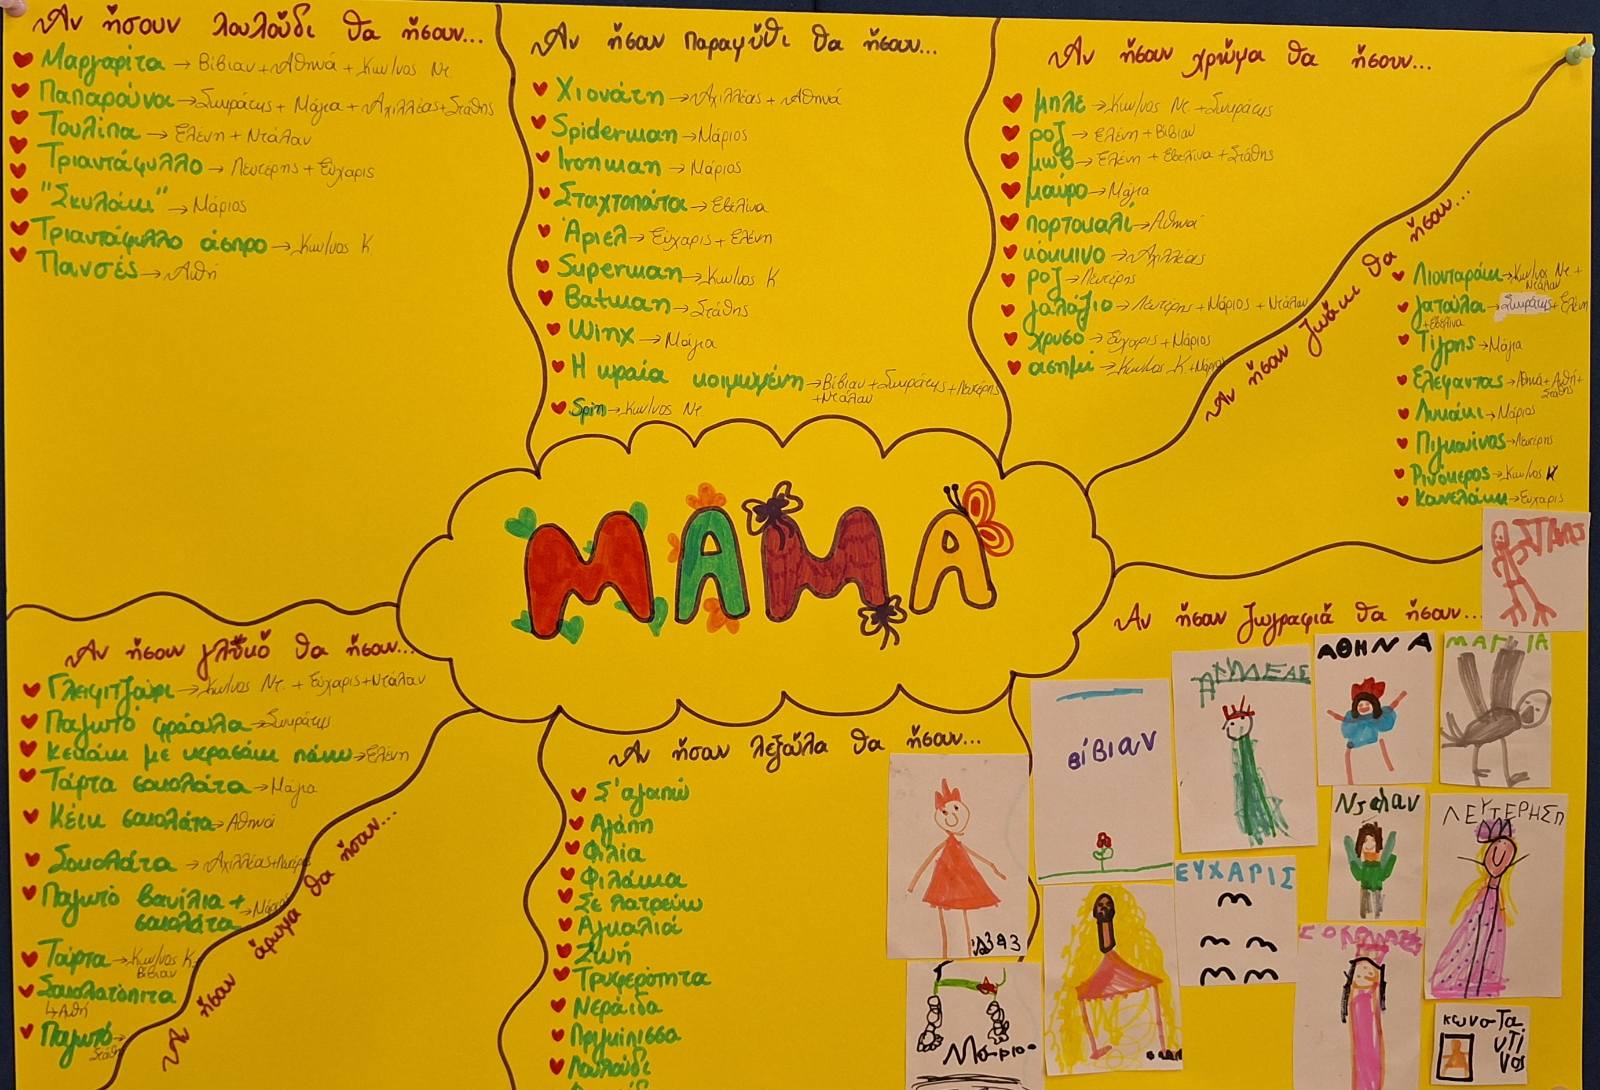 Αν ήσουν λουλούδι θα ήσουν...
Μαργαρίτα → Βίβιαν + Αθηνά + Κων/νος Ντ
Παπαρούνα → Σωκράτης + Μάγια + Αχιλλέας + Στάθης
Τουλίπα → Ελένη + Ντάλαν
Τριαντάφυλλο → Λευτέρης + Εύχαρις
"Σκυλάκι" → Μάριος
Τριαντάφυλλο άσπρο → Κων/νος Κ
Πανσές → Ανθή
Αν ήσουν παραμύθι θα ήσουν...
Χιονάτη → Αχιλλέας + Αθηνά
Spiderman → Μάριος
Ironman → Μάριος
Σταχτοπούτα → Εβελίνα
Άριελ → Εύχαρις + Ελένη
Superman → Κων/νος Κ
Batman → Στάθης
Winx → Μάγια
Η ωραία κοιμωμένη → Βίβιαν + Σωκράτης + Λευτέρης
+ Ντάλαν
Spin → Κων/νος Ντ
Αν ήσουν χρώμα θα ήσουν...
μπλε → Κων/νος Ντ + Σωκράτης
ροζ → Ελένη + Βίβιαν
μωβ → Ελένη + Εβελίνα + Στάθης
μαύρο → Μάγια
πορτοκαλί → Αθηνά
κόκκινο → Αχιλλέας
ροζ → Λευτέρης
γαλάζιο → Λευτέρης + Μάριος + Ντάλαν
χρυσό → Εύχαρις + Μάριος
ασημί → Κων/νος Κ +
Αν ήσουν ζωάκι θα ήσουν...
Λιονταράκι → Κων/νος Ντ +
Ντάλαν
γατούλα → Σωκράτης + Ελένη
+ Εβελίνα
Τίγρης → Μάγια
Ελέφαντας → Αθηνά + Ανθή +
Στάθης
Λυκάκι → Μάριος
Πιγκουίνος → Λευτέρης
Ρινόκερος → Κων/νος Κ
Κουνελάκι → Εύχαρις
ΜΑΜΑ
Αν ήσουν γλυκό θα ήσουν...
Γλειφιτζούρι → Κων/νος Ντ. + Εύχαρις + Ντάλαν
Παγωτό φράουλα → Σωκράτης
Κεϊκάκι με κερασάκι πάνω → Ελένη
Τάρτα σοκολάτα → Μάγια
Κέικ σοκολάτα → Αθηνά
Σοκολάτα → Αχιλλέας +
Παγωτό βανίλια +
σοκολάτα →
Τάρτα → Κων/νος Κ +
Βίβιαν
Σοκολατόπιτα
↳ Ανθή
Παγωτό →
Στάθης
Αν ήσουν άρωμα θα ήσουν...
Αν ήσουν λεξούλα θα ήσουν...
Σ'αγαπώ
Αγάπη
Φιλία
Φιλάκια
Σε λατρεύω
Αγκαλιά
Ζωή
Τρυφερότητα
Νεράιδα
Πριγκίπισσα
Λουλούδι
Αν ήσουν ζωγραφιά θα ήσουν...
ΒίβιΑΝ
ΑΘΗΝΑ
ΜΑΓΙΑ
Νταλαν
ΛΕΥΤΕΡΗΣ
ΕΥΧΑΡΙΣ
Μάριο
κωνσΤα
νΤΙ
νος